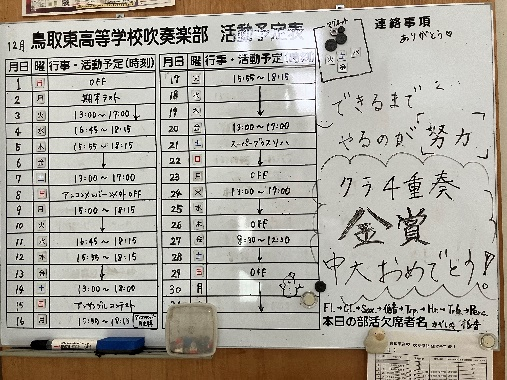 12月 鳥取東高等学校吹奏楽部 活動予定表
月日 曜 行事・活動予定(時刻)
1 日 OFF
2 月 期末テスト
3 火 13:00～17:00
4 水 16:45～18:15
5 木 15:55～18:15
6 金
7 土 13:00～17:00
8 日 OFF
9 月 15:00～18:15
10 火
11 水 16:45～18:15
12 木 15:55～18:15
13 金
14 土 13:00～18:00
15 日 アンサンブルコンテスト
16 月 18:15
月日 曜 行事・活動予定(時刻)
17 火 15:55～18:15
18 水
19 木
20 金 13:00～17:00
21 土
22 日
23 月 OFF
24 火 13:00～17:00
25 水
26 木
27 金 8:30～12:30
28 土
29 日 OFF
30 月
連絡事項
ありがとう
できるまで
やるのが「努力」
クラ4重奏
金賞
中大おめでとう!
Fl.→Cl.→Sax.→低音→Trp.→Hr.→Trb.→Perc.
本日の部活欠席者名